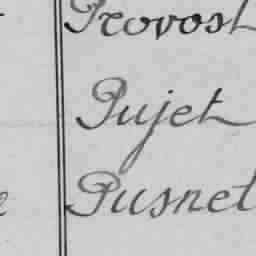 Provost
Pujet
Pusnet